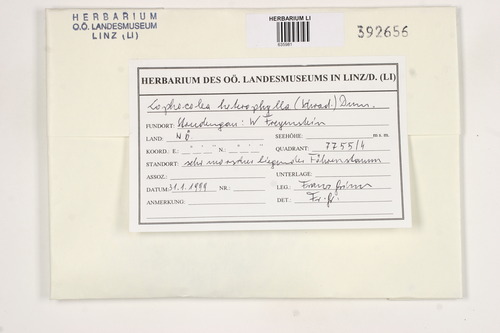 HERBARIUM
O.Ö. LANDESMUSEUM
LINZ (LI)
HERBARIUM LI
392656
HERBARIUM DES OÖ. LANDESMUSEUMS IN LINZ/D. (LI)
Lophocolea heterophylla (Schrad.) Dum.
FUNDORT: W Freyenstein
LAND: NÖ SEEHÖHE: m s. m.
KOORD.: E.: ° ' " N.: ° ' " QUADRANT: 7755/4
STANDORT: sehr morscher liegender Föhrenstamm
ASSOZ.: UNTERLAGE:
DATUM: 31.1.1999 NR.: LEG.: Franz Grims
ANMERKUNG: DET.: Fr. Gr.